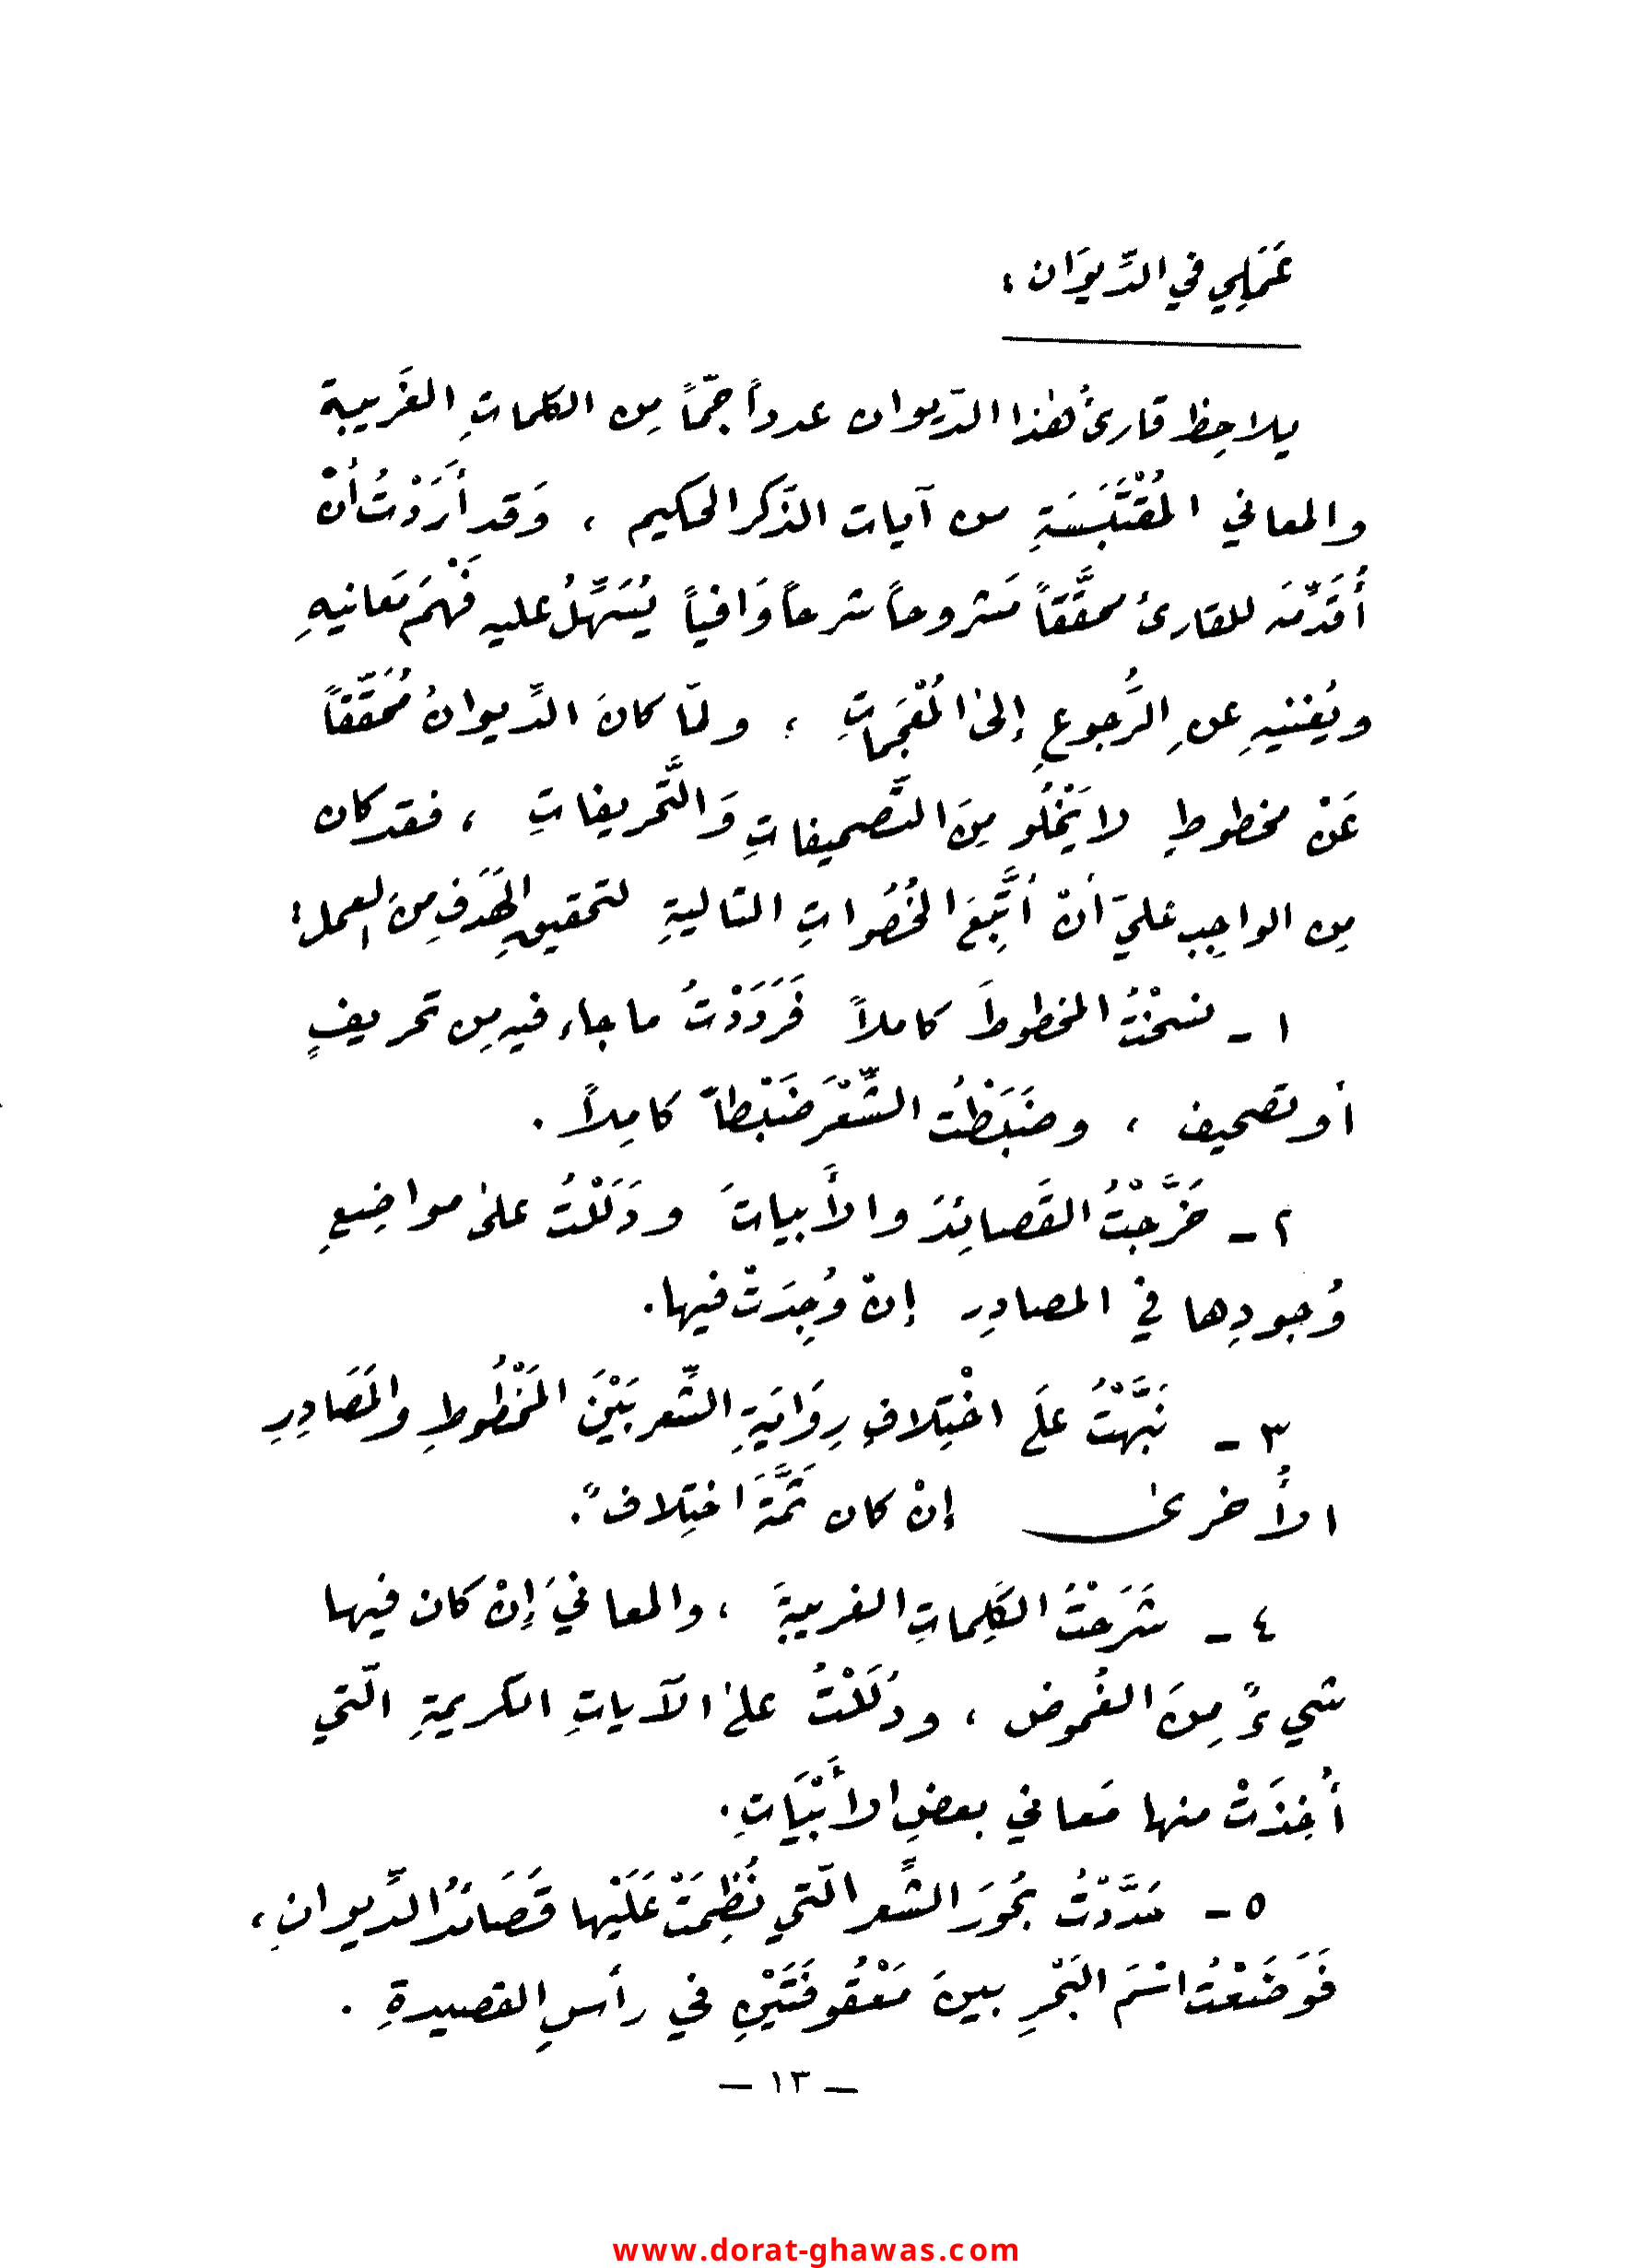 عَمَلِي في الدِّيوَان :
يلاحِظ قارئُ هٰذا الدّيوان عدداً جمّاً مِن الكلماتِ الغَريبة
والمعاني المُقْتَبَسَةِ من آيات الذّكر الحكيم ، وَقد أَرَدْتُ أنْ
أُقَدِّمَه للقارئ محقَّقاً مَشروحاً شرحاً وَافياً يُسَهِّلُ عليه فَهْمَ مَعانيهِ
ويُغنيهِ عنِ الرُّجوعِ إلىٰ المُعْجَماتِ ، ولمّا كانَ الدِّيوانُ مُحَقَّقاً
عَنْ مخطوطٍ لا يَخْلُو مِنَ التَّصحيفاتِ وَالتَّحريفاتِ ، فقد كان
مِن الواجِبِ عليَّ أنْ أتَّبِعَ الخُطُواتِ التاليةِ لتحقيقِ الهَدَفِ مِنَ العمل :
١ - نسخْتُ المخطوطَ كاملاً فَرَدَدْتُ ما جاء فيه مِن تحريفٍ
أو تصحيف ، وضَبَطْتُ الشِّعْرَ ضَبْطاً كامِلاً .
٢ - خَرَّجْتُ القَصائِدَ والأَبياتَ ودَلَلْتُ علىٰ مواضِعِ
وُجودِها في المصادِرِ إنْ وُجِدَتْ فيها .
٣ - نَبَّهْتُ علَى اخْتِلافِ رِوَايَةِ الشّعر بَيْنَ المَخْطُوطِ والمَصَادِرِ
الأُخرىٰ إنْ كان ثَمَّةَ اختِلافٌ .
٤ - شَرَحْتُ الكَلِماتِ الغريبةَ ، والمعانيَ إنْ كان فيها
شيءٌ مِنَ الغُموض ، ودَلَلْتُ علىٰ الآياتِ الكريمةِ الّتي
أُخِذَتْ منها مَعاني بعضِ الأَبْيَاتِ .
٥ - حَدَّدْتُ بحُورَ الشِّعر الّتي نُظِمَتْ عَلَيْها قَصَائدُ الدِّيوانِ ،
فَوَضَعْتُ اسْمَ البَحْرِ بينَ مَعْقُوفَتَيْنِ في رأسِ القصيدةِ .
— ١٣ —
www.dorat-ghawas.com